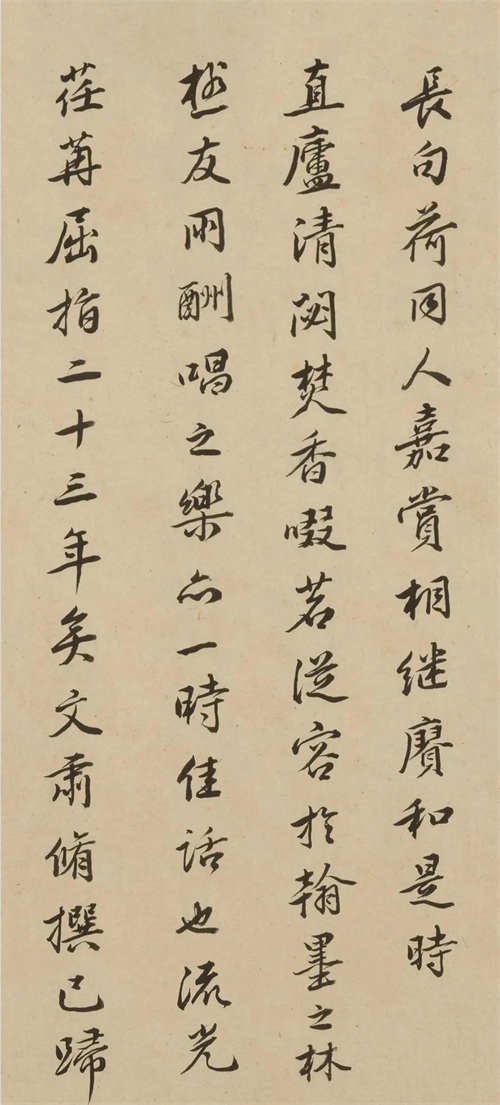 長句荷同人嘉賞相継賡和是時
直廬清閟焚香啜茗從容於翰墨之林
友朋酬唱之樂亦一時佳話也流光
荏苒屈指二十三年矣文肅脩撰已歸